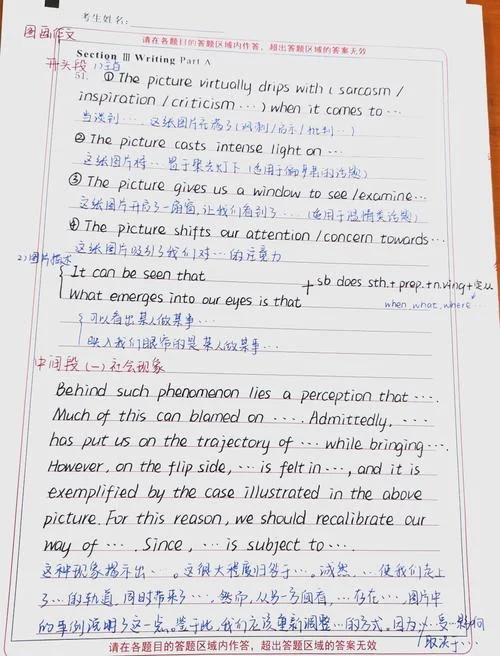 考生姓名：
图画作文
请在各题目的答题区域内作答，超出答题区域的答案无效
Section Ⅲ Writing Part A
开头段 1)主旨
51.
① The picture virtually drips with ( sarcasm /
inspiration / criticism ...) when it comes to ...
当谈到... 这张图片充满了(讽刺/启示/批判...)
② The picture casts intense light on ...
这张图片将...置于聚光灯下 (适用于
③ The picture gives us a window to see /examine...
这张图片开启了一扇窗,让我们看到了... (适用于 类话题)
④ The picture shifts our attention /concern towards...
这张图片吸引了我们对...的注意力
2)图片描述
It can be seen that
What emerges into our eyes is that
+ sb does sth.+ prep.+n.ving+
when, what, where...
可以看出某人做某事...
映入我们眼帘的是某人做某事...
中间段 (一) 社会现象
Behind such phenomenon lies a perception that ....
Much of this can blamed on .... Admittedly, ...
has put us on the trajectory of ... while bringing ....
However, on the flip side, ... is felt in ..., and it is
exemplified by the case illustrated in the above
picture. For this reason, we should recalibrate our
way of .... Since, ... is subject to ....
这种现象揭示出...。这很大程度归咎于...。诚然，...使我们走上
了...的轨道，同时带来了...。然而，从另一方面看，...存在...，图片中
的事例说明了这一点。鉴于此,我们应该重新调整...的方式。因为
取决于...
请在各题目的答题区域内作答，超出答题区域的答案无效